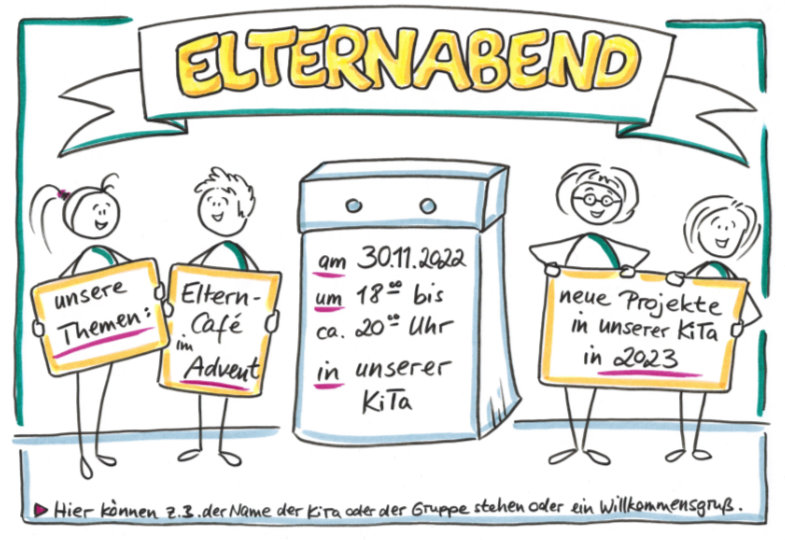 ELTERNABEND
unsere
Themen:
Eltern-
Café
im
Advent
am 30.11.2022
um 18⁰⁰ bis
ca. 20⁰⁰ Uhr
in unserer
KiTa
neue Projekte
in unserer KiTa
in 2023
Hier können z.B. der Name der KiTa oder der Gruppe stehen oder ein Willkommensgruß.